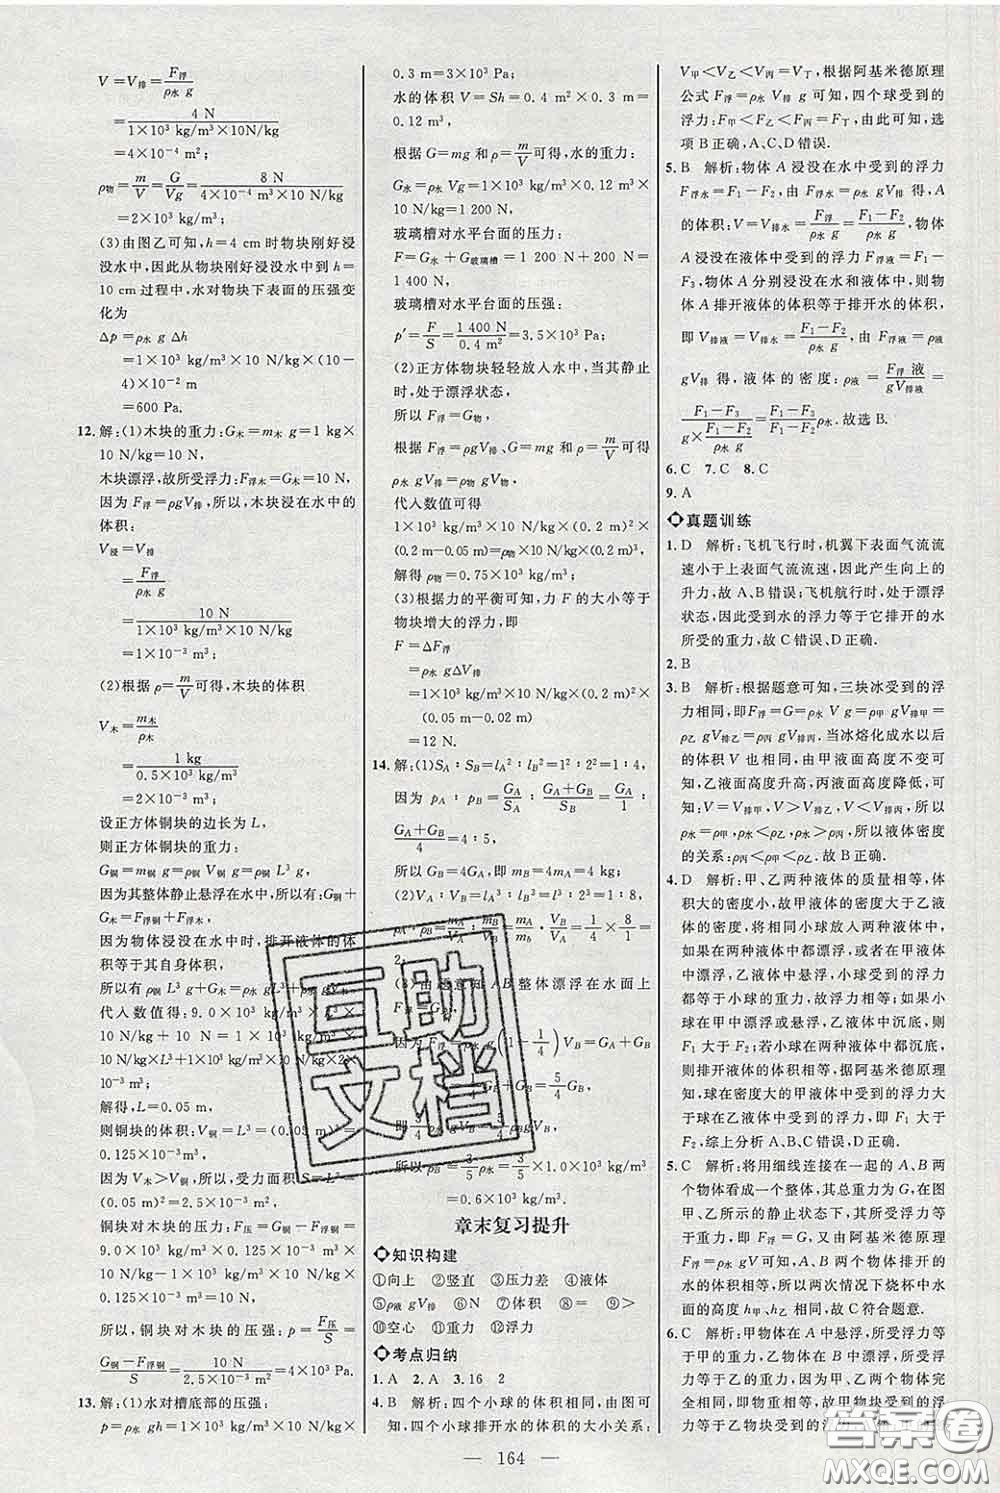 V=V排=F浮/ρ水 g
=4 N/1×10³ kg/m³×10N/kg
=4×10⁻⁴ m³;
ρ物=m/V=G/Vg=8 N/4×10⁻⁴ m³×10 N/kg
=2×10³ kg/m³;
(3)由图乙可知,h=4 cm时物块刚好浸
没水中,因此从物块刚好浸没水中到h=
10 cm过程中,水对物块下表面的压强变
化为
Δp=ρ水 g Δh
=1×10³ kg/m³×10 N/kg×(10-
4)×10⁻² m
=600 Pa.
12.解:(1)木块的重力:G木=m木 g=1 kg×
10 N/kg=10 N,
木块漂浮,故所受浮力:F浮木=G木=10 N,
因为F浮=ρgV排,所以,木块浸在水中的
体积:
V浸=V排
=F浮/ρ水 g
=10 N/1×10³ kg/m³×10 N/kg
=1×10⁻³ m³;
(2)根据ρ=m/V可得,木块的体积
V木=m木/ρ木
=1 kg/0.5×10³ kg/m³
=2×10⁻³ m³,
设正方体铜块的边长为L,
则正方体铜块的重力:
G铜=m铜 g=ρ铜 V铜 g=ρ铜 L³ g
因为其整体静止悬浮在水中,所以有:G铜+
G木=F浮铜+F浮木
因为物体浸没在水中时,排开液体的体
积等于其自身体积,
所以有ρ铜 L³ g+G木=ρ水 gL³+ρ水 gV木
代入数值得:9.0×10³ kg/m³×L³×
10 N/kg+10 N=1×10³ kg/m³×L³×
10 N/kg+1×10³ kg/m³×10 N/kg×2×
10⁻³ m³;
解得,L=0.05 m,
则铜块的体积:V铜=L³=(0.05 m)³=
0.125×10⁻³ m³,
因为V木>V铜,所以,受力面积S=L²=
(0.05 m)²=2.5×10⁻³ m²,
铜块对木块的压力:F压=G铜-F浮铜=
9.0×10³ kg/m³×0.125×10⁻³ m³×
10 N/kg-1×10³ kg/m³×10 N/kg×
0.125×10⁻³ m³=10 N,
所以,铜块对木块的压强:p=F压/S=
G铜-F浮铜/S=10 N/2.5×10⁻³ m²=4×10³ Pa.
13.解:(1)水对槽底部的压强:
p=ρ水 gh=1×10³ kg/m³×10 N/kg×
0.3 m=3×10³ Pa;
水的体积V=Sh=0.4 m²×0.3 m=
0.12 m³,
根据G=mg和ρ=m/V可得,水的重力:
G水=ρ水 Vg=1×10³ kg/m³×0.12 m³×
10 N/kg=1 200 N,
玻璃槽对水平台面的压力:
F=G水+G玻璃槽=1 200 N+200 N=
1 400 N,
玻璃槽对水平台面的压强:
p′=F/S=1 400 N/0.4 m²=3.5×10³ Pa;
(2)正方体物块轻轻放入水中,当其静止
时,处于漂浮状态,
所以F浮=G物,
根据F浮=ρgV排、G=mg和ρ=m/V可得
ρ水 gV排=ρ物 gV物,
代入数值可得
1×10³ kg/m³×10 N/kg×(0.2 m)²×
(0.2 m-0.05 m)=ρ物×10 N/kg×(0.2 m)³
解得ρ物=0.75×10³ kg/m³;
(3)根据力的平衡可知,力F的大小等于
物块增大的浮力,即
F=ΔF浮
=ρ水 gΔV排
=1×10³ kg/m³×10 N/kg×(0.2 m)²×
(0.05 m-0.02 m)
=12 N.
14.解:(1)SA∶SB=lA²∶lB²=1²∶2²=1∶4,
因为pA∶pB=GA/SA∶GA+GB/SB=GA/1∶
GA+GB/4=4∶5,
所以GB=4GA,即mB=4mA=4 kg;
(2)VA∶VB=lA³∶lB³=1³∶2³=1∶8,
ρA∶ρB=mA/VA∶mB/VB=mA/mb·VB/VA=1/4×8/1=
2;
(3)由题意知AB整体漂浮在水面上
F浮=G总
因为F浮=ρ水 g(1-1/4)VB=GA+GB
GA+GB=5/4GB
所以3/4ρ水 gVB=5/4ρB gVB
所以ρB=3/5ρ水=3/5×1.0×10³ kg/m³
=0.6×10³ kg/m³.
章末复习提升
知识构建
①向上 ②竖直 ③压力差 ④液体
⑤ρ液 gV排 ⑥N ⑦N ⑧= ⑨>
⑩空心 ⑪重力 ⑫浮力
考点归纳
1.A 2.A 3.16 2
4.B 解析:四个小球的体积相同,由图可
知,四个小球排开水的体积的大小关系:
V甲<V乙<V丙=V丁,根据阿基米德原理
公式F浮=ρ水 V排 g可知,四个球受到的
浮力:F甲<F乙<F丙=F丁,由此可知,选
项B正确,A、C、D错误.
5.B 解析:物体A浸没在水中受到的浮力
F浮水=F₁-F₂,由F浮水=ρ水 gV排得,A
的体积:V=V排水=F浮水/ρ水g=F₁-F₂/ρ水g,物体
A浸没在液体中受到的浮力F浮液=F₁-
F₃,物体A分别浸没在水和液体中,则物
体A排开液体的体积等于排开水的体积,
即V排液=V排水=F₁-F₂/ρ水g,由F浮液=ρ液
gV排得,液体的密度:ρ液=F浮液/gV排液=
F₁-F₃/g×F₁-F₂/ρ水g=F₁-F₃/F₁-F₂ρ水.故选B.
6.C 7.C 8.C
9.A
真题训练
1.D 解析:飞机飞行时,机翼下表面气流流
速小于上表面气流流速,因此产生向上的
升力,故A、B错误;飞机航行时,处于漂浮
状态,因此受到水的浮力等于它排开的水
所受的重力,故C错误、D正确.
2.B
3.B 解析:根据题意可知,三块冰受到的浮
力相同,即F浮=G=ρ水 Vg=ρ甲 gV排甲=
ρ乙 gV排乙=ρ丙 gV排丙,当冰熔化成水以后
的体积V也相同,由甲液面高度不变可
知,乙液面高度升高;丙液面高度降低,可
知:V=V排甲,V>V排乙,V<V排丙,所以
ρ水=ρ甲,ρ水<ρ乙,ρ水>ρ丙,所以液体密度
的关系:ρ丙<ρ甲<ρ乙.故B正确.
4.D 解析:甲、乙两种液体的质量相等,体
积大的密度小,故甲液体的密度大于乙液
体的密度,将相同小球放入两种液体中,
如果在两种液体中都漂浮,或者在甲液体
中漂浮、在乙液体中悬浮,两种情况下浮
力都等于小球的重力,故浮力相等;若小球
在甲中漂浮/悬浮,乙液体中沉底,则
F₁大于F₂;若小球在两种液体中都沉底,
则排开液体的体积相等,据阿基米德原理
可知,球在密度大的甲液体中受到的浮力
大于球在乙液体中受到的浮力,即F₁大于
F₂,综上分析A、B、C错误、D正确.
5.C 解析:将用细线连接在一起的A、B两
个物体看成一个整体,其重力为G,在图
甲、乙所示的静止状态下,其浮力F浮=
G总,所受浮力F浮=G,又由阿基米德原理
F浮=ρ水 gV排可知,A、B两个物体排开的
水的体积相等,所以两次情况下烧杯中水
面的高度h甲、h乙相等,故C符合题意.
6.C 解析:甲物体在A中悬浮,所受浮力等
于甲的重力,乙物块在B中漂浮,所受浮
力等于乙的重力,甲、乙体积和密度相等,
即物重相等,故甲物块受到的
浮力等于乙物块受到的浮力
— 164 —
互助
文档
答案圈
MXQE.COM